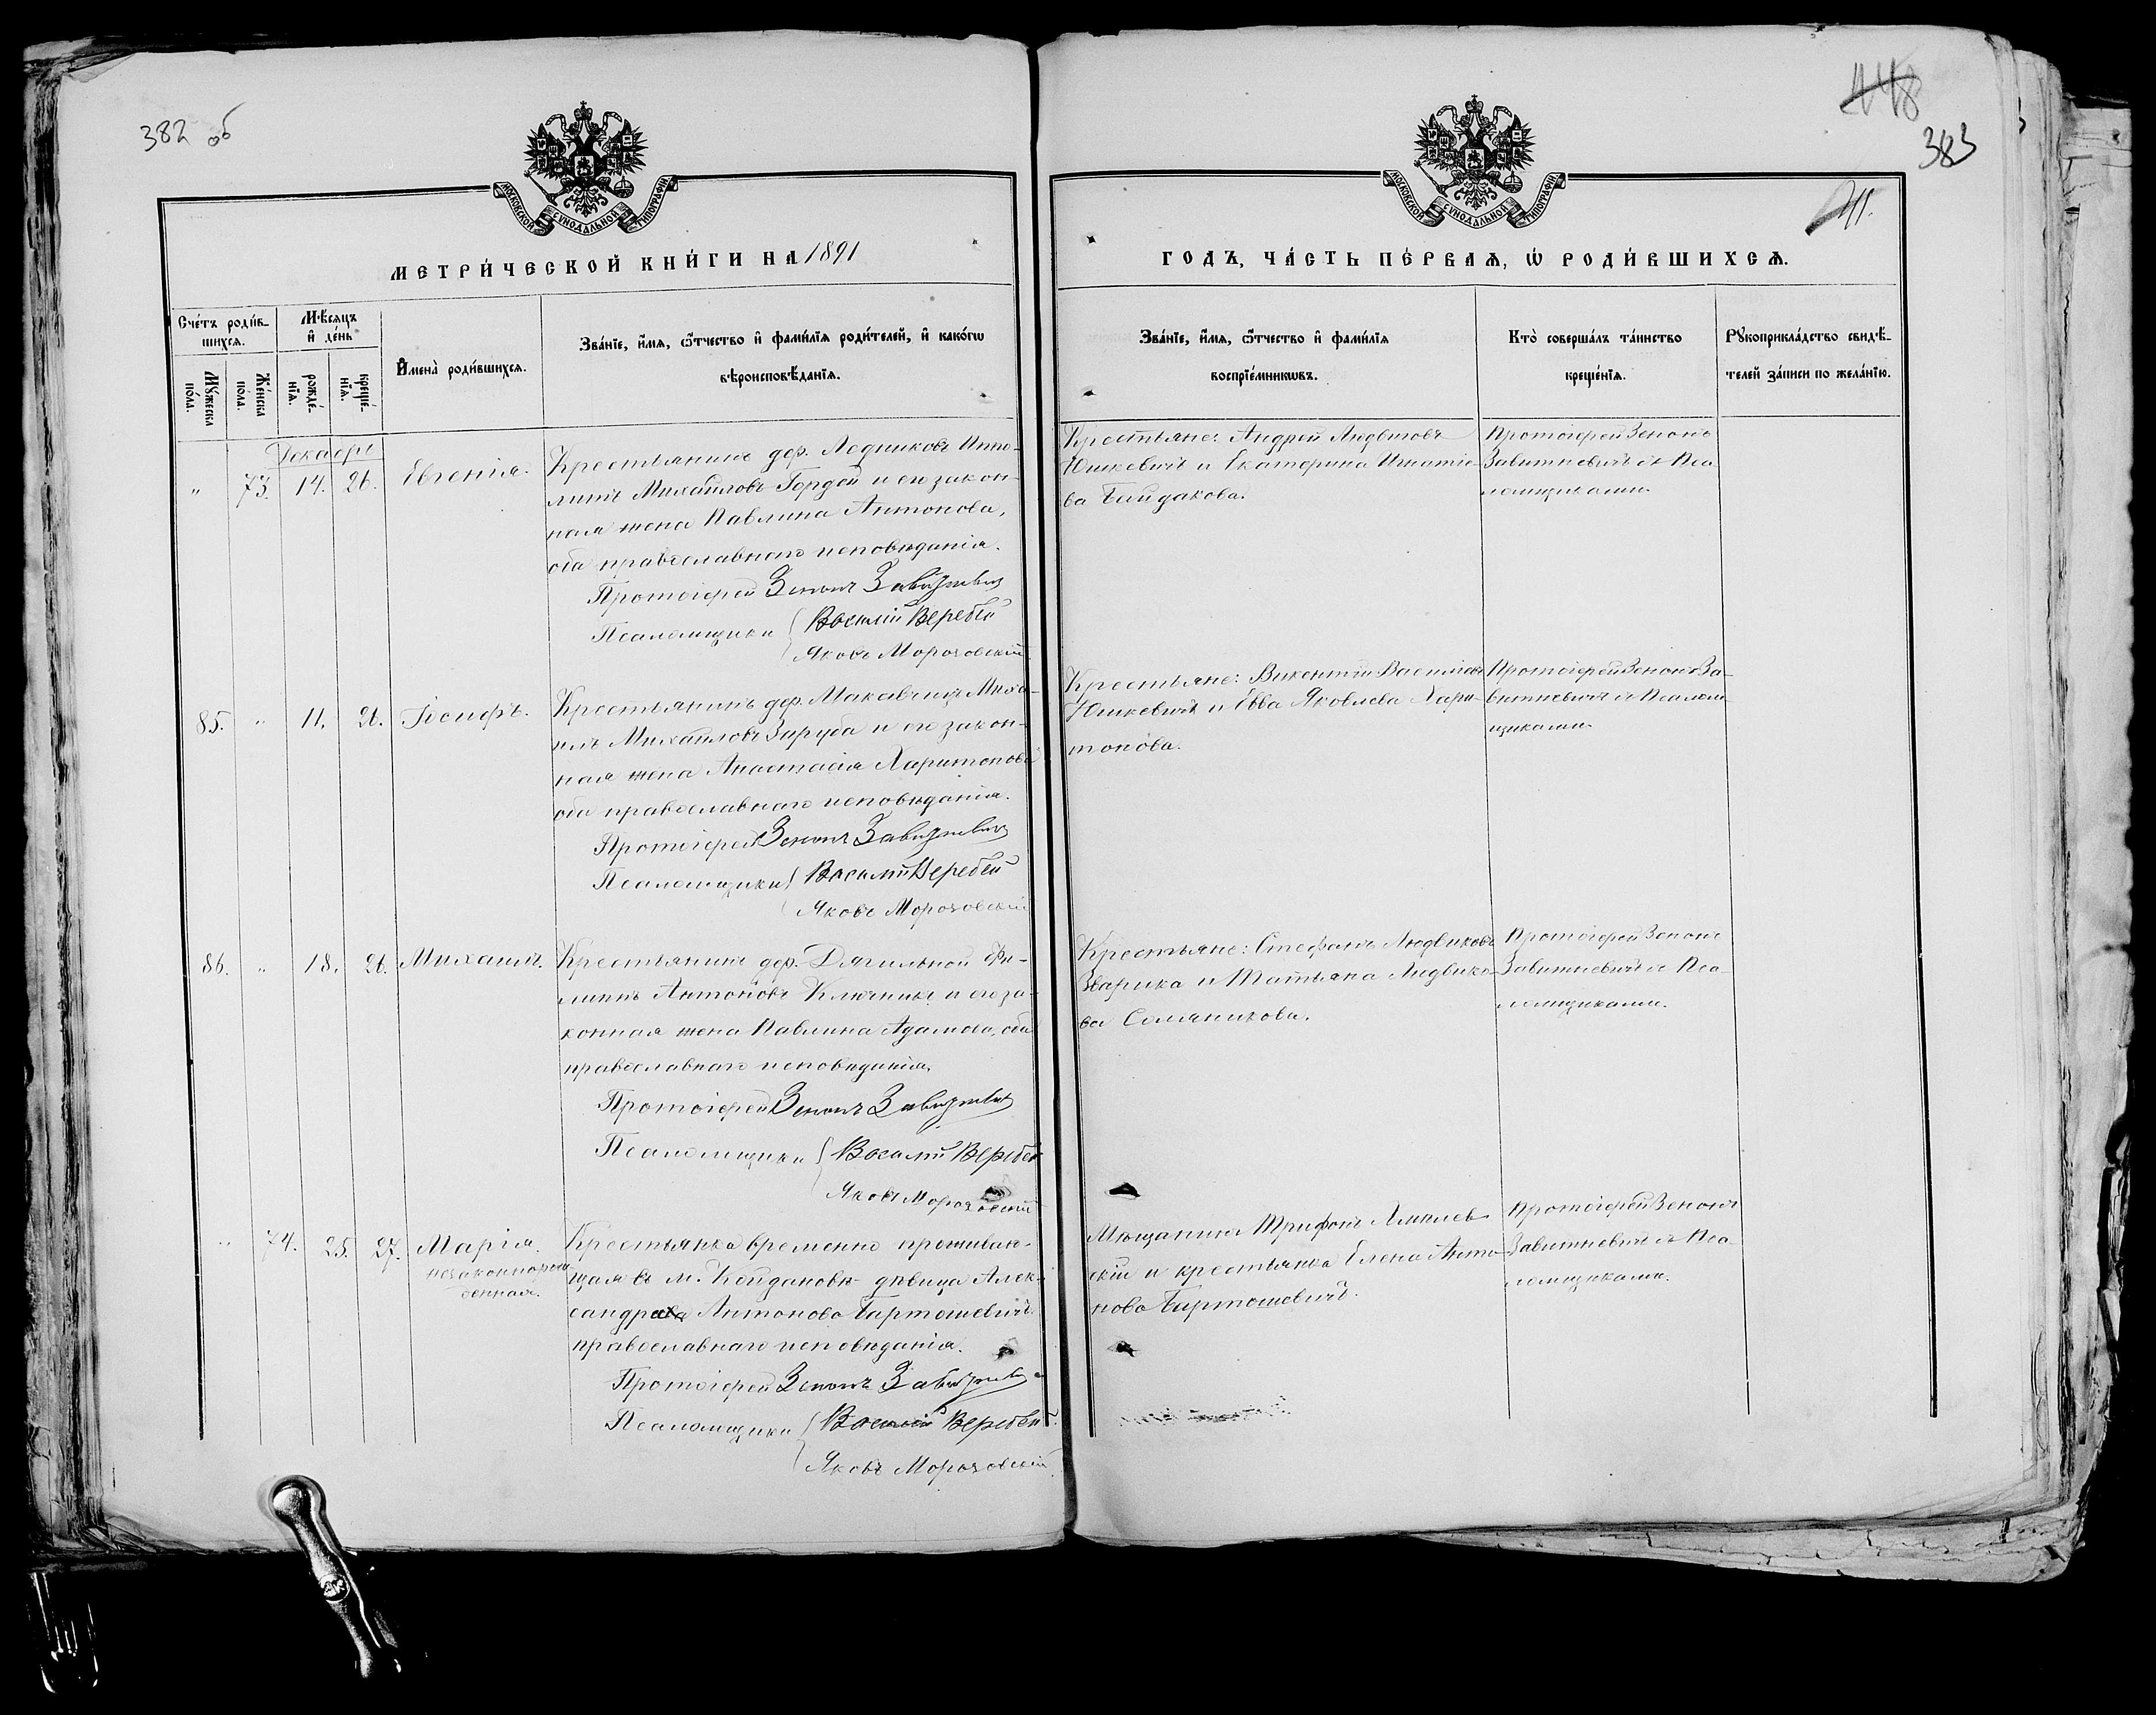 382 об
448
383
41.
МОСКОВСКОЙ СѴНОДАЛЬНОЙ ТИПОГРАФІИ
МОСКОВСКОЙ СѴНОДАЛЬНОЙ ТИПОГРАФІИ
МЕТРИ́ЧЕСКОЙ КНИ́ГИ НА 1891
ГОДЪ, ЧА́СТЬ ПЕ́РВАѦ, Ѡ҆ РОДИ́ВШИХСѦ.
Сче́тъ роди́в-
шихсѧ.
Мѣ́сѧцъ
и҆ де́нь
Мꙋ́жеска
по́ла.
Же́нска
по́ла.
рожде́-
нїѧ.
креще́-
нїѧ.
И҆мена̀ роди́вшихсѧ.
Зва́нїе, и҆́мѧ, ѻ҆́тчество и҆ фами́лїѧ роди́телей, и҆ како́гѡ
вѣроисповѣ́данїѧ.
Зва́нїе, и҆́мѧ, ѻ҆́тчество и҆ фами́лїѧ
воспрїе́мникѡвъ.
Кто̀ соверша́лъ та́инство
креще́нїѧ.
Рꙋкоприкла́дство свидѣ́-
телей за́писи по жела́нїю.
Декабрь
" 73. 14. 26. Евгенія.
Крестьянинъ дер. Ледниковъ Иппо-
литъ Михайловъ Гордей и его закон-
ная жена Павлина Антонова,
оба православнаго исповѣданія.
Протоіерей Зенонъ Завитневичъ
Псаломщики { Василій Веребей
Яковъ Морозовскій
Крестьяне: Андрей Людвиковъ
Юшкевичъ и Екатерина Игнатіе-
ва Байдакова.
Протоіерей Зенонъ
Завитневичъ съ Пса-
ломщиками.
85. " 11. 26. Іосифъ.
Крестьянинъ дер. Макавчицъ Миха-
илъ Михайловъ Заруба и его закон-
ная жена Анастасія Харитонова
оба православнаго исповѣданія.
Протоіерей Зенонъ Завитневичъ
Псаломщики { Василій Веребей
Яковъ Морозовскій
Крестьяне: Викентій Васильевъ
Юшкевичъ и Евва Яковлева Хари-
тонова.
Протоіерей Зенонъ За-
витневичъ съ Псалом-
щиками.
86. " 18. 26. Михаилъ.
Крестьянинъ дер. Дягильной Фи-
липпъ Антоновъ Ключникъ и его за-
конная жена Павлина Адамова, оба
православнаго исповѣданія.
Протоіерей Зенонъ Завитневичъ
Псаломщики { Василій Веребей
Яковъ Морозовскій
Крестьяне: Стефанъ Людвиковъ
Зварика и Татьяна Людвико-
ва Семяникова.
Протоіерей Зенонъ
Завитневичъ съ Пса-
ломщиками.
" 74. 25. 27. Марія.
незаконнорож-
денная.
Крестьянка временно проживаю-
щая въ м. Койдановѣ дѣвица Алек-
сандра Антонова Бартошевичъ
православнаго исповѣданія.
Протоіерей Зенонъ Завитневичъ
Псаломщики { Василій Веребей
Яковъ Морозовскій
Мѣщанинъ Трифонъ
скій и крестьянка Елена Анто-
нова Бартошевичъ.
Протоіерей Зенонъ
Завитневичъ съ Пса-
ломщиками.